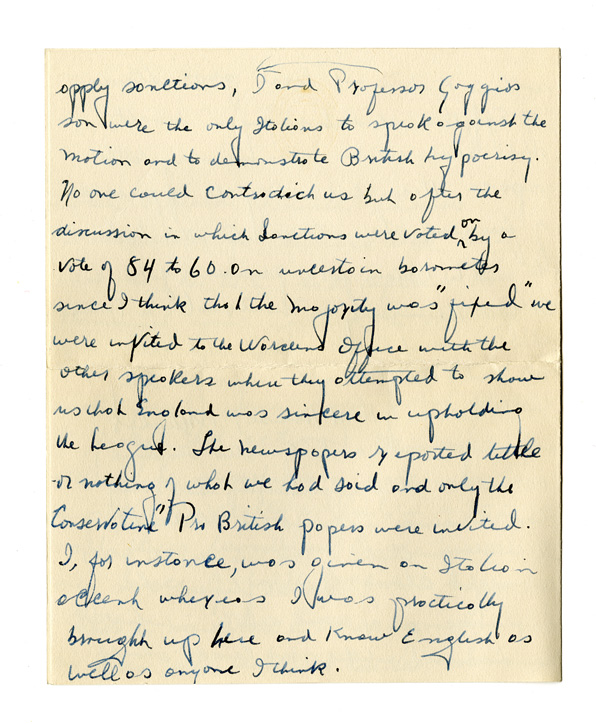 apply sanctions, I and Professor Goggios
son were the only Italians to speak against the
motion and to demonstrate British hypocrisy.
No one could contradict us but after the
discussion in which Sanctions were voted on by a
vote of 84 to 60. an uncertain barometer
since I think that the majority was "fixed" we
were invited to the Wardens Office with the
other speakers where they attempted to show
us that England was sincere in upholding
the League. The newspapers reported little
or nothing of what we had said and only the
Conservative" Pro British papers were invited.
I, for instance, was given an Italian
accent whereas I was practically
brought up here and know English as
well as anyone I think.